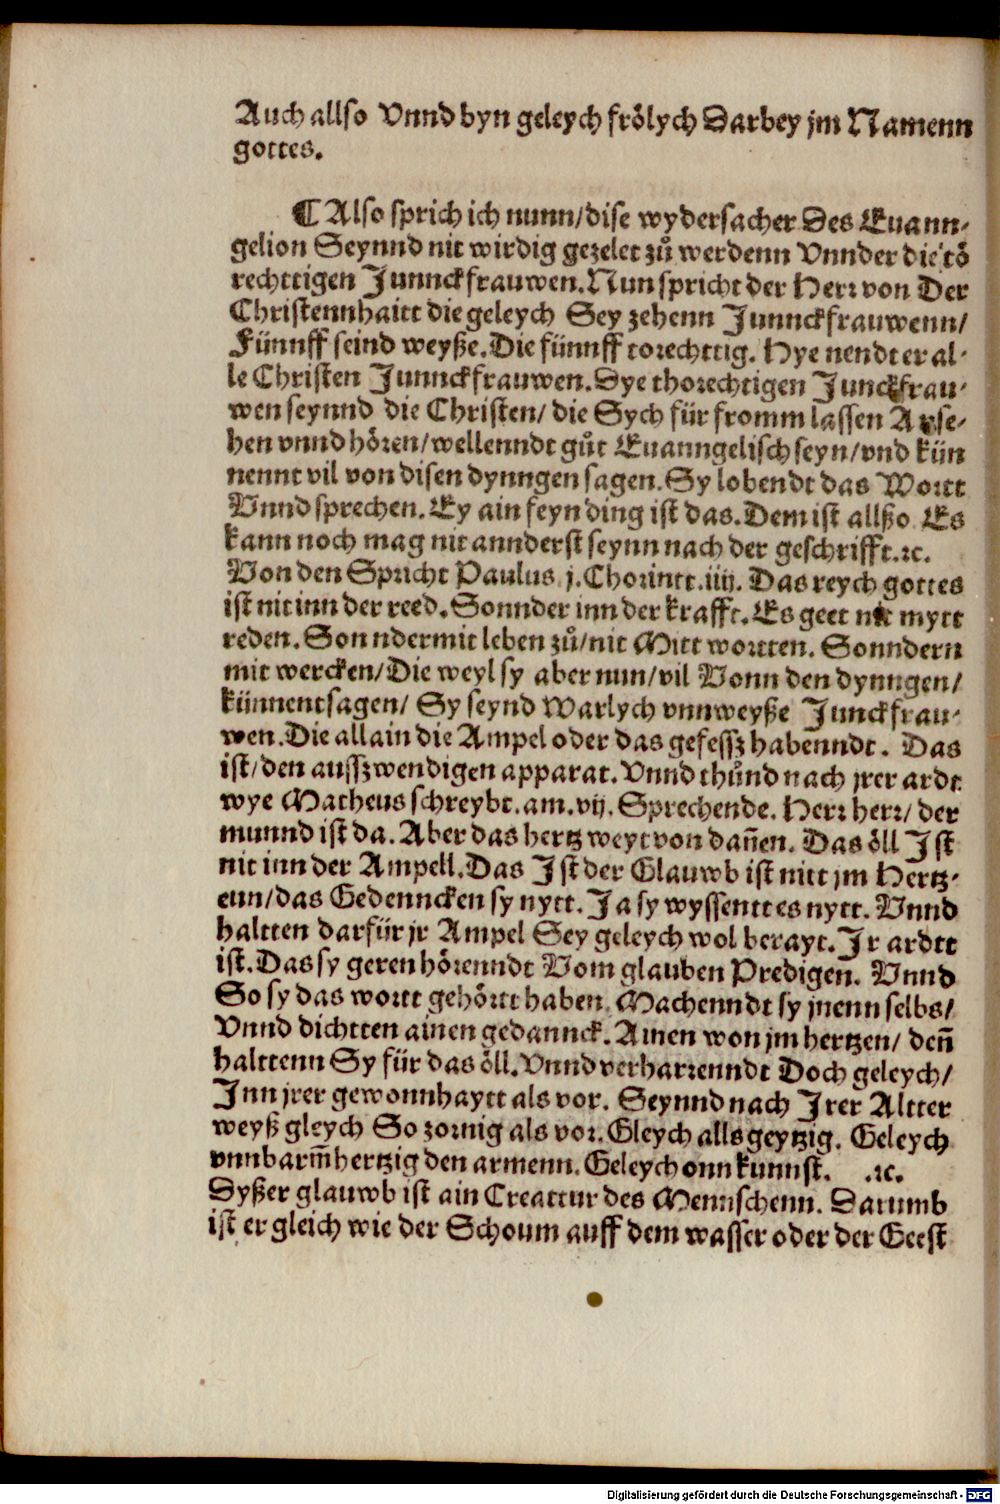 Auch allso Vnnd byn geleych frölych Darbey jm Namenn
gottes.
¶ Also sprich ich nunn/dise wydersacher Des Euann-
gelion Seynnd nit wirdig gezelet zů werdenn Vnnder die tö
rechttigen Junnckfrauwen. Nun spricht der Herr von Der
Christennhaitt die geleych Sey zehenn Junnckfrauwenn/
Fünnff seind weyße. Die fünnff torechttig. Hye nendt er al-
le Christen Junnckfrauwen. Dye thorechtigen Junckfrau-
wen seynnd die Christen/ die Sych für fromm lassen Anse-
hen vnnd hören/wellenndt gůt Euanngelisch seyn/vnd kün
nennt vil von disen dynngen sagen. Sy lobendt das Wortt
Vnnd sprechen. Ey ain feyn ding ist das. Dem ist allßo Es
kann noch mag nit annderst seynn nach der geschrifft.ꝛc.
Von den Spricht Paulus j. Chorintt.iiij. Das reych gottes
ist nit inn der reed. Sonnder inn der krafft. Es geet nit mytt
reden. Sonndermit leben zů/nit Mitt wortten. Sonndern
mit wercken/Die weyl sy aber nun/vil Vonn den dynngen/
künnentsagen/ Sy seynd Warlych vnnweyße Junckfrau-
wen. Die allain die Ampel oder das gefessz habenndt. Das
ist/den aussz wendigen apparat. Vnnd thůnd nach jrer ardt
wye Matheus schreybt.am.vij. Sprechende. Herr herr/ der
munnd ist da. Aber das hertz weyt von dañen. Das öll Jst
nit inn der Ampell. Das Jst der Glauwb ist nitt jm Hertz-
enn/das Gedenncken sy nytt. Ja sy wyssentt es nytt. Vnnd
haltten darfür jr Ampel Sey geleych wol berayt. Jr ardtt
ist. Das sy geren hörenndt Vom glauben Predigen. Vnnd
So sy das wortt gehörtt haben. Machenndt sy jnenn selbs/
Vnnd dichtten ainen gedannck. Ainen won jm hertzen/ deñ
halttenn Sy für das öll. Vnnd verharrenndt Doch geleych/
Jnn jrer gewonnhaytt als vor. Seynnd nach Jrer Altter
weyß gleych So zornig als vor. Gleych alls geytzig. Geleych
vnnbarm̄hertzig den armenn. Geleych onn kunnst. .ꝛc.
Dyßer glauwb ist ain Creattur des Mennschenn. Darumb
ist er gleich wie der Schoum auff dem wasser oder der Geest
Digitalisierung gefördert durch die Deutsche Forschungsgemeinschaft - DFG